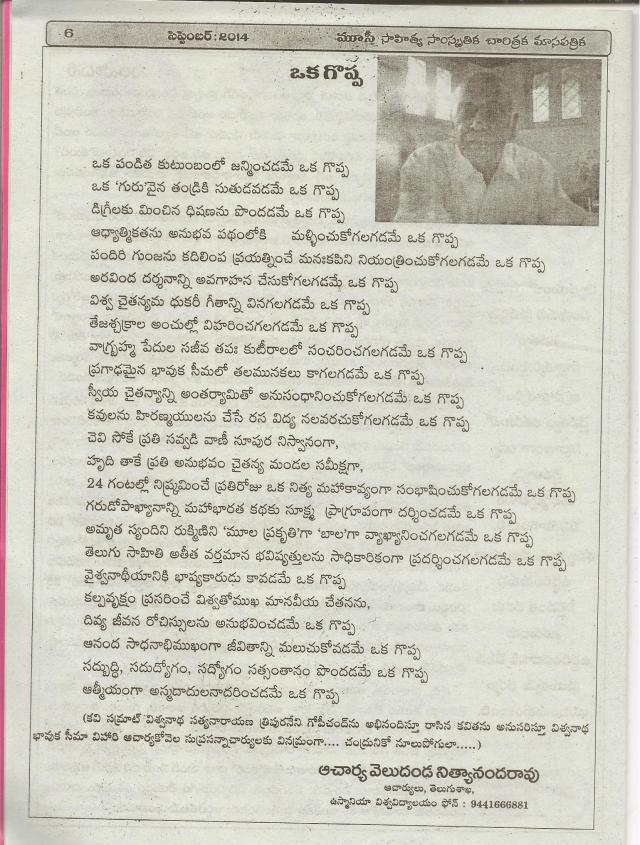 6 సెప్టెంబర్:2014 మూసీ సాహిత్య సాంస్కృతిక చారిత్రక మాసపత్రిక
ఒక గొప్ప
ఒక పండిత కుటుంబంలో జన్మించడమే ఒక గొప్ప
ఒక 'గురు'వైన తండ్రికి సుతుడవడమే ఒక గొప్ప
డిగ్రీలకు మించిన ధిషణను పొందడమే ఒక గొప్ప
ఆధ్యాత్మికతను అనుభవ పథంలోకి మళ్ళించుకోగలగడమే ఒక గొప్ప
పందిరి గుంజను కదిలింప ప్రయత్నించే మనఃకపిని నియంత్రించుకోగలగడమే ఒక గొప్ప
అరవింద దర్శనాన్ని అవగాహన చేసుకోగలగడమే ఒక గొప్ప
విశ్వ చైతన్యమ ధుకరీ గీతాన్ని వినగలగడమే ఒక గొప్ప
తేజశ్చక్రాల అంచుల్లో విహరించగలగడమే ఒక గొప్ప
వాగ్బ్రహ్మ పేదుల సజీవ తపః కుటీరాలలో సంచరించగలగడమే ఒక గొప్ప
ప్రగాఢమైన భావుక సీమలో తలమునకలు కాగలగడమే ఒక గొప్ప
స్వీయ చైతన్యాన్ని అంతర్యామితో అనుసంధానించుకోగలగడమే ఒక గొప్ప
కవులను హిరణ్మయులను చేసే రస విద్య నలవరచుకోగలగడమే ఒక గొప్ప
చెవి సోకే ప్రతి సవ్వడి వాణీ నూపుర నిస్వానంగా,
హృది తాకే ప్రతి అనుభవం చైతన్య మండల సమీక్షగా,
24 గంటల్లో నిష్క్రమించే ప్రతిరోజు ఒక నిత్య మహాకావ్యంగా సంభాషించుకోగలగడమే ఒక గొప్ప
గరుడోపాఖ్యానాన్ని మహాభారత కథకు సూక్ష్మ ప్రాగ్రూపంగా దర్శించడమే ఒక గొప్ప
అమృత స్యందిని రుక్మిణిని 'మూల ప్రకృతి'గా 'బాల'గా వ్యాఖ్యానించగలగడమే ఒక గొప్ప
తెలుగు సాహితి అతీత వర్తమాన భవిష్యత్తులను సాధికారికంగా ప్రదర్శించగలగడమే ఒక గొప్ప
వైశ్వనాథీయానికి భాష్యకారుడు కావడమే ఒక గొప్ప
కల్పవృక్షం ప్రసరించే విశ్వతోముఖ మానవీయ చేతనను,
దివ్య జీవన రోచిస్సులను అనుభవించడమే ఒక గొప్ప
ఆనంద సాధనాభిముఖంగా జీవితాన్ని మలుచుకోవడమే ఒక గొప్ప
సద్బుద్ధి, సదుద్యోగం, సద్యోగం సత్సంతానం పొందడమే ఒక గొప్ప
ఆత్మీయంగా అస్మదాదులనాదరించడమే ఒక గొప్ప
(కవి సమ్రాట్ విశ్వనాథ సత్యనారాయణ త్రిపురనేని గోపీచంద్‌ను అభినందిస్తూ రాసిన కవితను అనుసరిస్తూ విశ్వనాథ
భావుక సీమా విహారి ఆచార్యకోవెల సుప్రసన్నాచార్యులకు వినమ్రంగా.... చంద్రునికో నూలుపోగులా.....)
ఆచార్య వెలుదండ నిత్యానందరావు
ఆచార్యులు, తెలుగుశాఖ,
ఉస్మానియా విశ్వవిద్యాలయం ఫోన్ : 9441666881